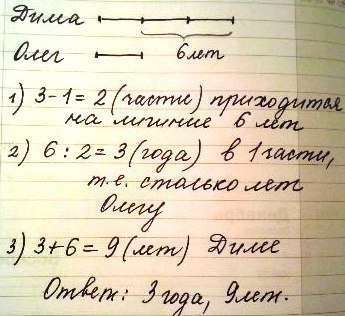 Дима
Олег 6 лет
1) 3-1 = 2 (части) приходится
на лишние 6 лет
2) 6 : 2 = 3 (года) в 1 части,
т.е. столько лет
Олегу
3) 3+6 = 9 (лет) Диме
Ответ: 3 года, 9 лет.